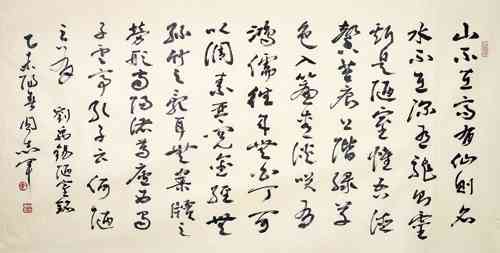 山不在高有仙則名
水不在深有龍則靈
斯是陋室惟吾德
馨苔痕上階綠草
色入簾青談笑有
鴻儒往來無白丁可
以調素琴閱金經無
絲竹之亂耳無案牘之
勞形南陽諸葛廬西蜀
子雲亭孔子云何陋
之有 劉禹錫陋室銘
乙未陽春周志軍